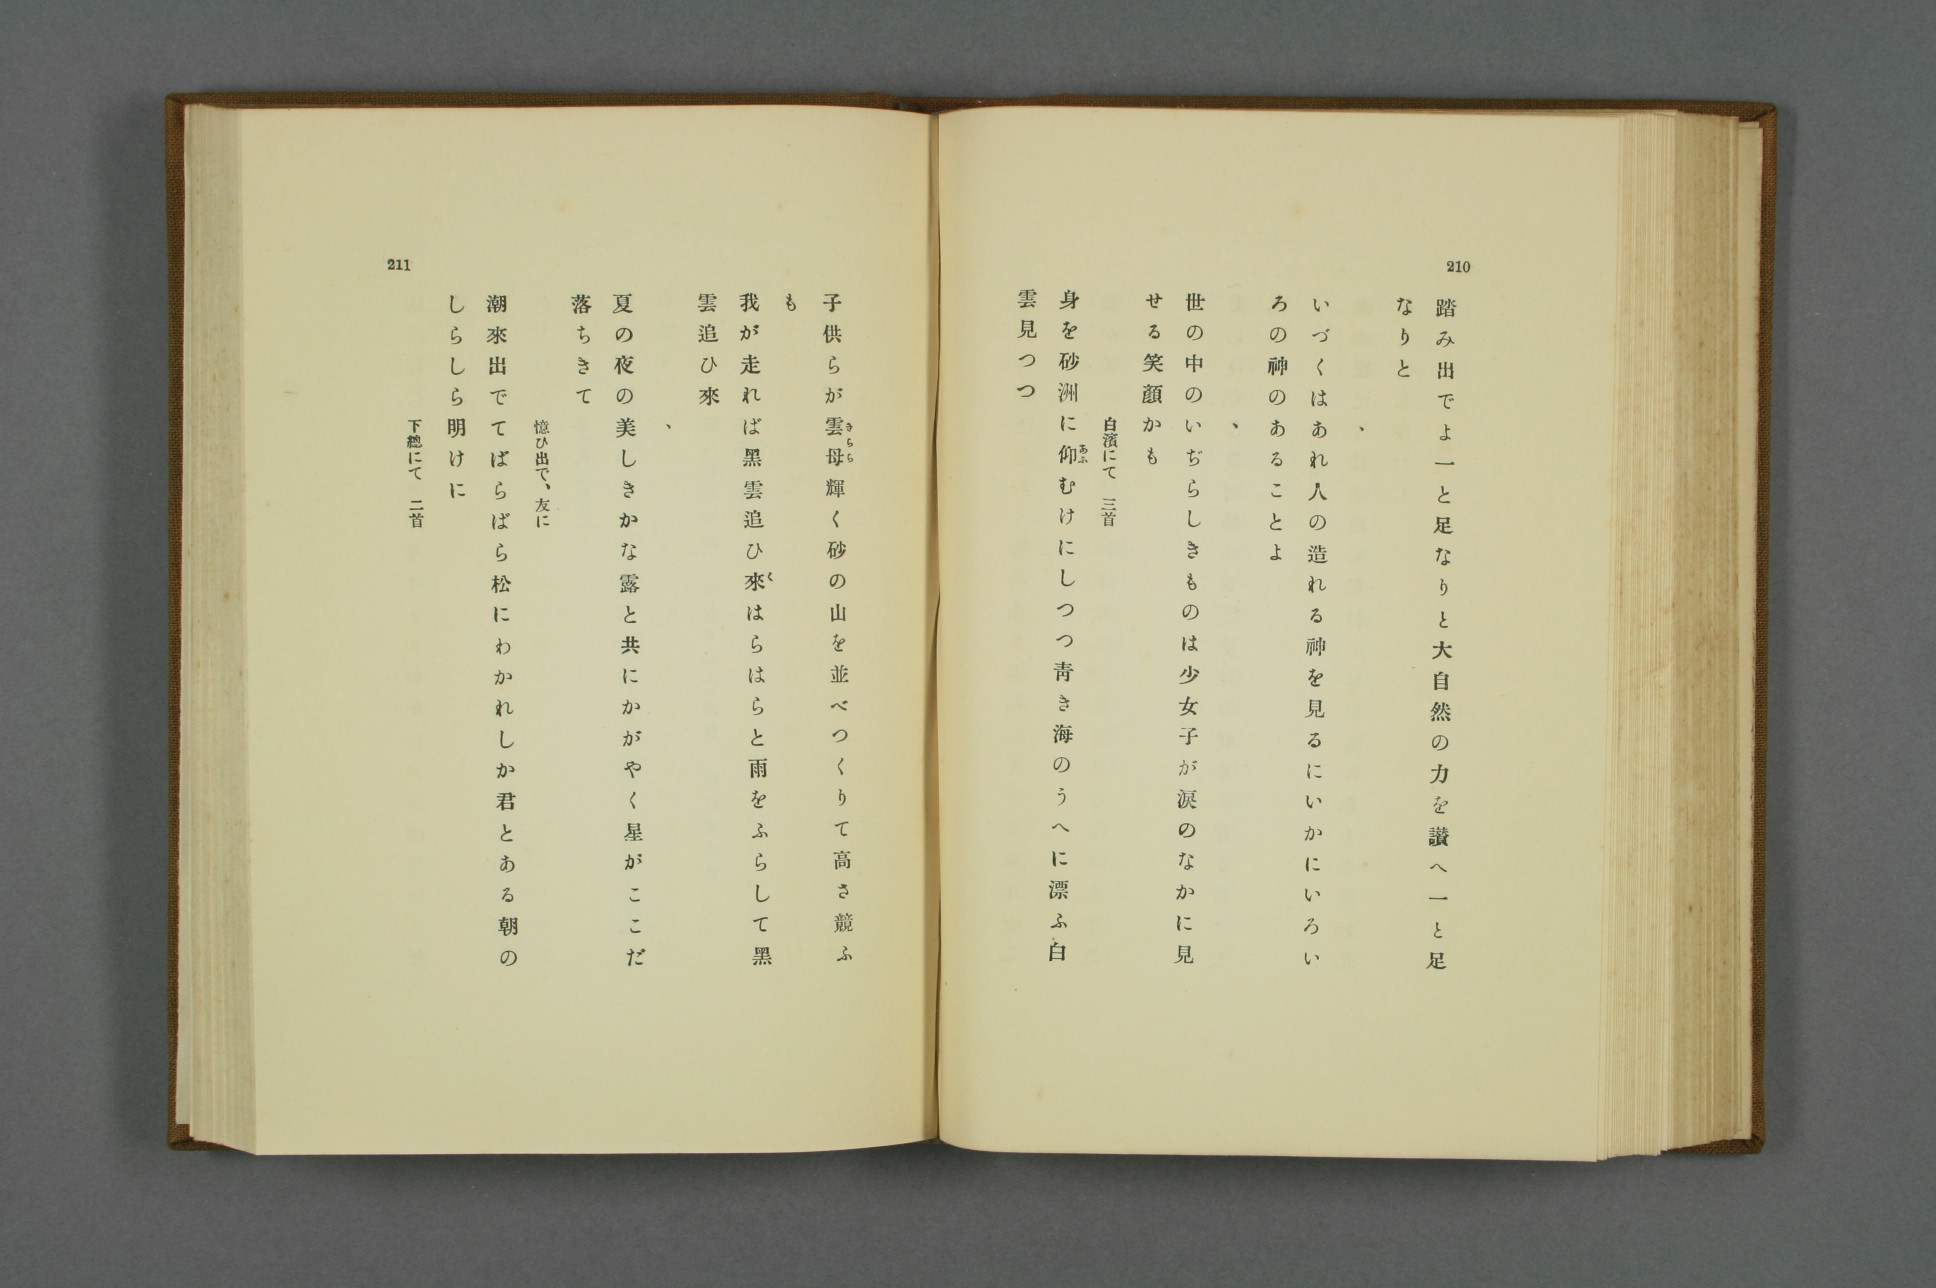 210
踏み出でよ一と足なりと大自然の力を讃へ一と足
なりと
、
いづくはあれ人の造れる神を見るにいかにいろい
ろの神のあることよ
、
世の中のいぢらしきものは少女子が涙のなかに見
せる笑顏かも
白濱にて 三首
身を砂洲に仰むけにしつつ靑き海のうへに漂ふ白
雲見つつ
211
子供らが雲母輝く砂の山を並べつくりて高さ競ふ
も
我が走れば黑雲追ひ來はらはらと雨をふらして黑
雲追ひ來
、
夏の夜の美しきかな露と共にかがやく星がここだ
落ちきて
憶ひ出で、友に
潮來出でてばらばら松にわかれしか君とある朝の
しらしら明けに
下總にて 二首